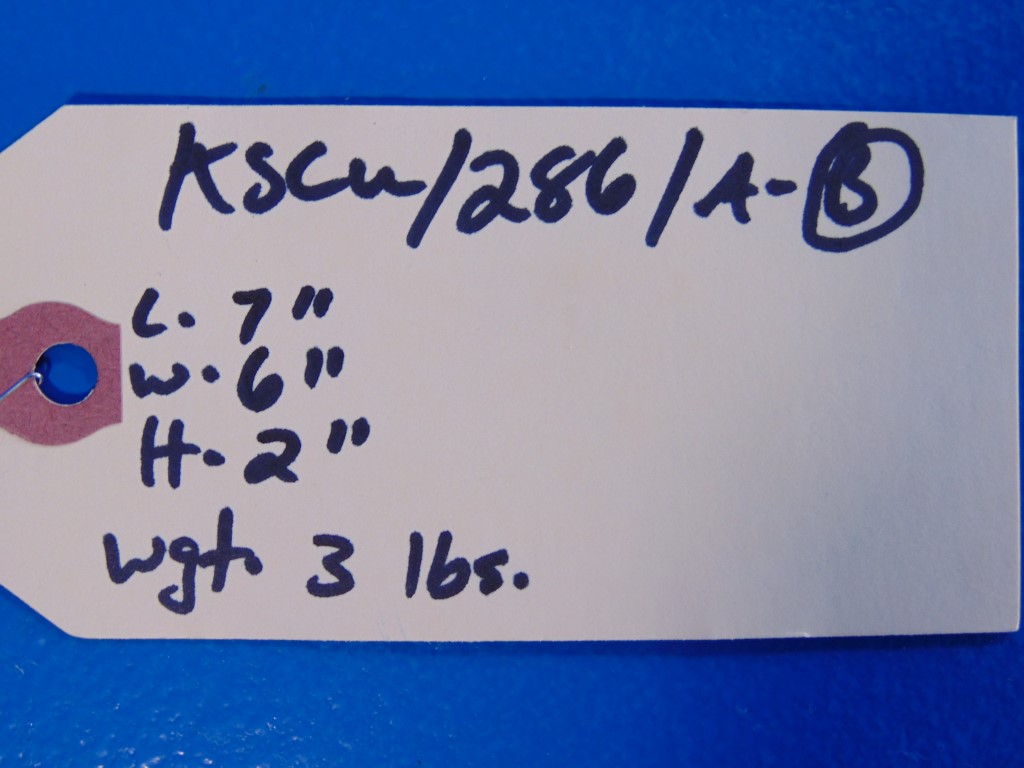 KSCU/286/A-B
L. 7"
W. 6"
H. 2"
Wgt. 3 lbs.